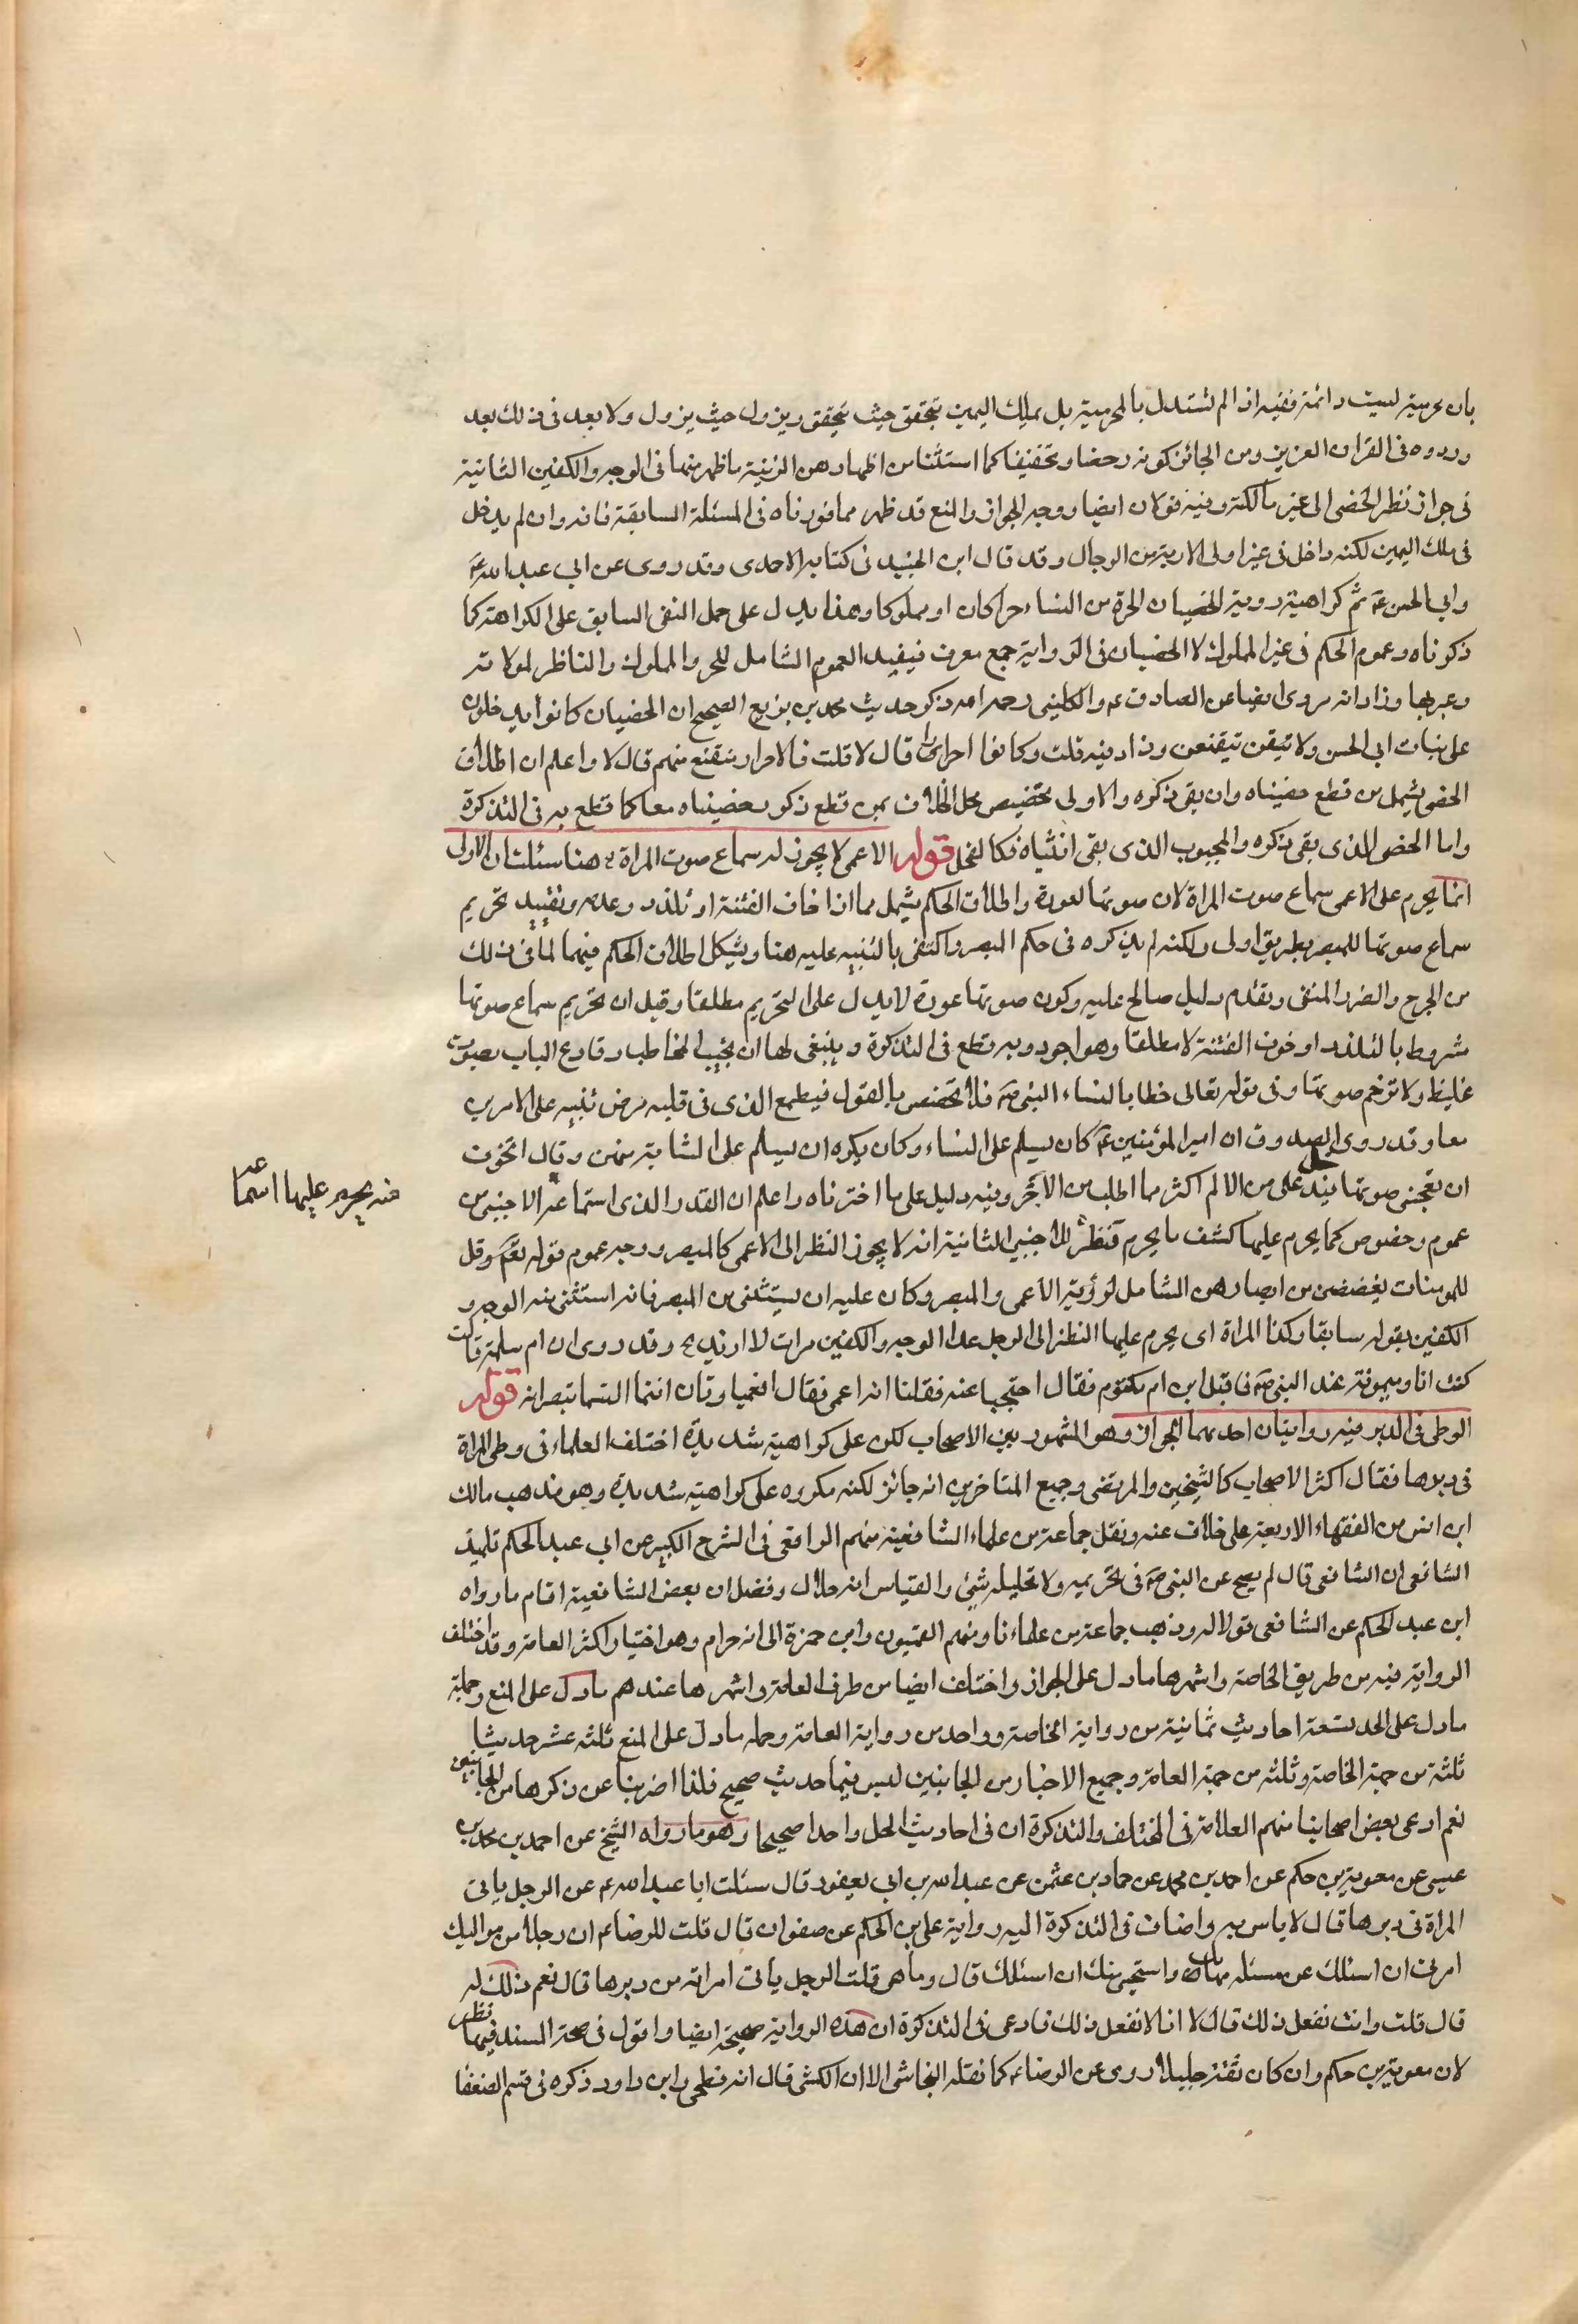 بان محرميته ليست دائمة ففيه انا لم نستدل بالمحرمية بل بملك اليمين يتحقق حيث يتحقق ويزول حيث يزول ولا بعد فى ذلك بعد
وروده فى القرآن العزيز ومن الجائز كونه رخصا وتخفيفا كما استثنا من اظهارهن الزينة ما ظهر منها فى الوجه والكفين الثانية
فى جواز نظر الخصى الى غير مالكته وفيه قولان ايضا ووجه الجواز والمنع قد ظهر مما قررناه فى المسئلة السابقة فانه وان لم يدخل
فى ملك اليمين لكنه داخل فى غير اولى الاربة من الرجال وقد قال ابن الجنيد فى كتابه الاحمدى وقد روى عن ابي عبد الله ع
وابي الحسن ع كراهية روية الخصيان الحرة من النساء حرا كان او مملوكا وهذا يدل على حمل النفى السابق على الكراهة كما
ذكرناه وعموم الحكم فى غير المملوك لا الخصيان فى الرواية جمع معرف فيفيد العموم الشامل للحر والمملوك والناظر لمولاته
وغيرها وزاد انه مروى ايضا عن الصادق ع والكلينى رحمه الله ذكر حديث محمد بن بزيع الصحيح ان الخصيان كانوا يدخلون
على بنات ابى الحسن ولا يتقنعن وزاد فيه قلت وكانوا احرارا قال لا قلت فالاحرار يتقنع منهم قال لا واعلم ان اطلاق
الخصى يشمل من قطع خصيتاه وان بقى ذكره والاولى تخصيص محل الخلاف بمن قطع ذكره وخصيتاه معا كما قطع به فى التذكرة
واما الخصى الذى بقى ذكره والمجبوب الذى بقى انثياه فكالفحل قوله الاعمى لا يجوز له سماع صوت المراة هنا مسئلتان الاولى
انما يحرم على الاعمى سماع صوت المراة لان صوتها لعورة واطلاق الحكم يشمل ما اذا خاف الفتنة او تلذذ وعدمه وتقييد تحريم
سماع صوتها للمبصر بطريق اولى ولكنه لم يذكره فى حكم المبصر واكتفى بالتنبيه عليه هنا ويشكل اطلاق الحكم فيهما لما فى ذلك
من الحرج والضرر المنفى وبعدم دليل صالح عليه وكون صوتها عورة لا يدل على التحريم مطلقا وقيل ان تحريم سماع صوتها
مشروط بالتلذذ او خوف الفتنة لا مطلقا وهو اجود وبه قطع فى التذكرة وينبغى لها ان تجيب المخاطب وقارع الباب بصوت
غليظ ولا ترخم صوتها وفى قوله تعالى خطابا لنساء النبى ص فلا تخضعن بالقول فيطمع الذى فى قلبه مرض تنبيه على الامرين
معا وقد روى الصدوق ان امير المؤمنين ع كان يسلم على النساء وكان يكره ان يسلم على الشابة منهن وقال اتخوف
ان تعجبنى صوتها فيدخل على من الالم اكثر مما اطلب من الاجر وفيه دليل على ما اخترناه واعلم ان القدر الذى استماعه الاجنبى من
عموم وخصوص كما يحرم عليها كشف ما يحرم نظره للاجنبى الثانية انه لا يجوز النظر الى الاعمى كالمبصر ووجه عموم قوله تعالى وقل
للمومنات يغضضن من ابصارهن الشامل لرؤية الاعمى والمبصر وكان عليه ان يستثنى من المبصر فانه استثنى منه الوجه و
الكفين بقوله سابقا وكذا المراة اى يحرم عليها النظر الى الرجل عدا الوجه والكفين مرات لا ازيد وقد روى ان ام سلمة قالت
كنت انا وميمونة عند النبى ص فاقبل ابن ام مكتوم فقال احتجبا عنه فقلنا انه اعمى فقال افعمياوتان انتما الستما تبصرانه قوله
الوطى فى الدبر فيه روايتان احديهما الجواز وهو المشهور بين الاصحاب لكن على كراهية شديدة اختلف العلماء فى وطى المراة
فى دبرها فقال اكثر الاصحاب كالشيخين والمرتضى وجميع المتاخرين انه جائز لكنه مكروه على كراهية شديدة وهو مذهب مالك
ابن انس من الفقهاء الاربعة على خلاف عنه ونقل جماعة من علماء الشافعية منهم الرافعى فى الشرح الكبير عن ابى عبد الحكم تلميذ
الشافعى ان الشافعى قال لم يصح عن النبى ص فى تحريمه ولا تحليله شئ والقياس انه حلال وفضل ان بعض الشافعية اقام ما رواه
ابن عبد الحكم عن الشافعى قولا له وذهب جماعة من علمائنا ومنهم القميون وابن حمزة الى انه حرام وهو اختيار اكثر العامة وقد اختلف
الرواية فيه من طريق الخاصة واشهرها ما دل على الجواز واختلف ايضا من طرف العامة واشهرها عندهم ما دل على المنع وجملة
ما دل على الحل تسعة احاديث ثمانية من رواية الخاصة وواحد من رواية العامة وجمله ما دل على المنع ثلثه عشر حديثا
ثلثة من جهة الخاصة وثلثه من جهة العامة وجميع الاخبار من الجانبين ليس فيها حديث صحيح فلذا اضربنا عن ذكرها من الجانبين
نعم ادعى بعض اصحابنا منهم العلامة فى المختلف والتذكرة ان فى احاديث الحل واحدا صحيحا وهو ما رواه الشيخ عن احمد بن محمد بن
عيسى عن معوية بن حكم عن احمد بن محمد عن حماد بن عثمن عن عبد الله بن ابى يعفور قال سئلت ابا عبد الله ع عن الرجل ياتى
المراة فى دبرها قال لا باس به واضاف فى التذكرة اليه رواية على بن الحكم عن صفوان قال قلت للرضا ع ان رجلا من مواليك
امرنى ان اسئلك عن مسئله هابك واستحيى منك ان اسئلك قال وما هى قلت الرجل ياتى امراته من دبرها قال نعم ذلك له
قال قلت وانت تفعل ذلك قال لا انا لا نفعل ذلك فادعى فى التذكرة ان هذه الرواية صحيحة ايضا واقول فى صحة السند فيهما نظر
لان معوية بن حكم وان كان ثقة جليلا روى عن الرضا ع كما نقله النجاشى الا ان الكشى قال انه فطحى وابن داود ذكره فى قسم الضعفا
منه يحرم عليها اسماعه